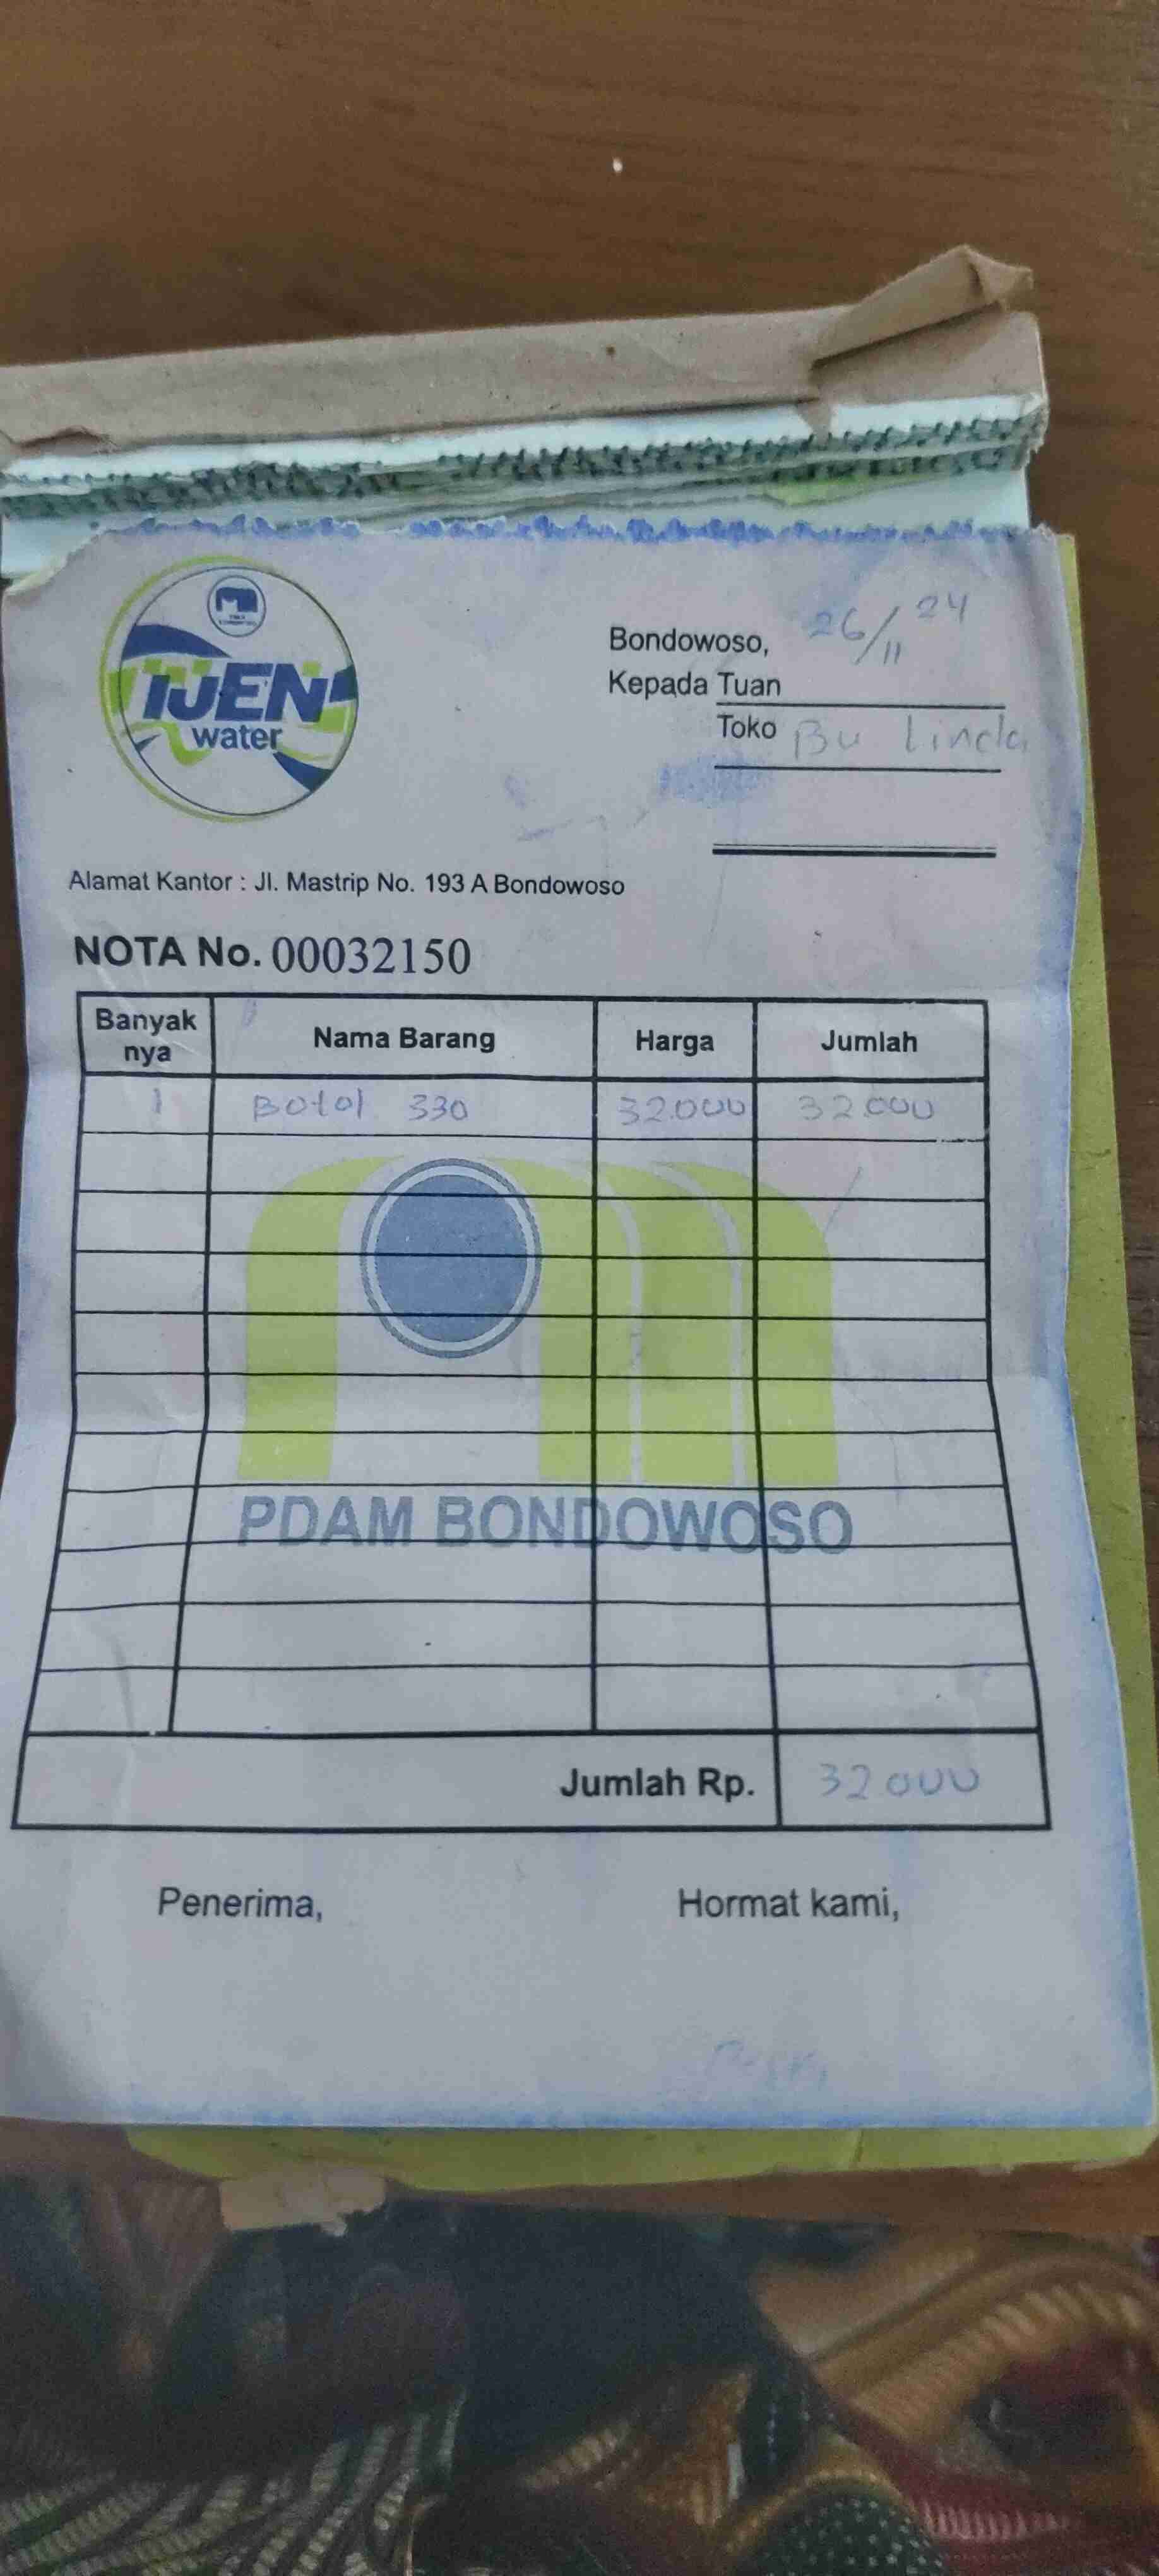 IJEN
water
Bondowoso, 26/11 24
Kepada Tuan
Toko Bu Linda
Alamat Kantor : Jl. Mastrip No. 193 A Bondowoso
NOTA No. 00032150
Banyak nya Nama Barang Harga Jumlah
1 Botol 330 32.000 32.000
PDAM BONDOWOSO
Jumlah Rp. 32.000
Penerima, Hormat kami,